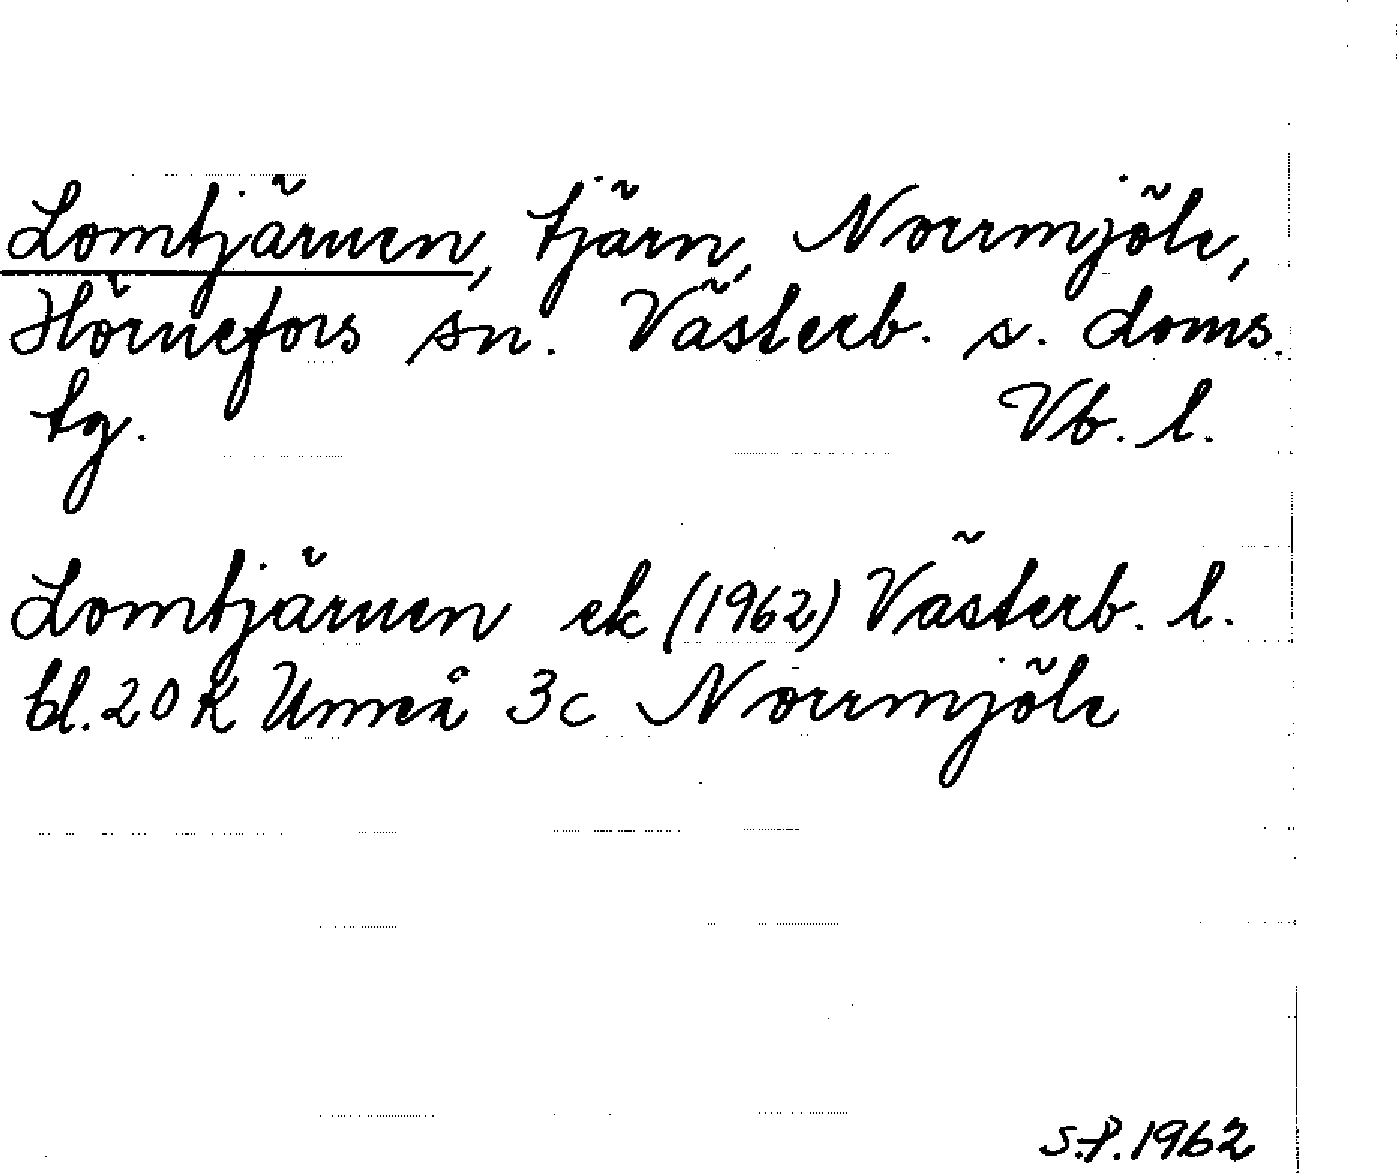 Lomtjärnen, tjärn, Norrmjöle,
Hörnefors sn. Västerb. s. doms.
tg. Vb. l.
Lomtjärnen ek (1962) Västerb. l.
bl. 20 K Umeå 3c Norrmjöle
S.P. 1962